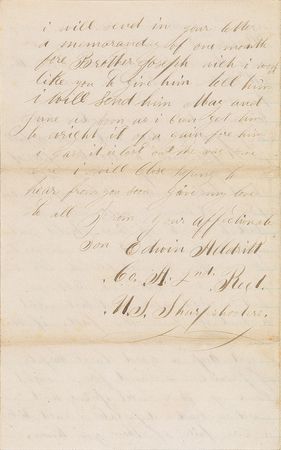 i will send in your letter
a memorandy of one month
fore Brother Joseph wich i
like you to give him tell him
i Will Send him May and
june as soon as i can get him
to wright it of a gain fore him
i it is last one
i will Close hoping to
hear from you soon give my love
to all from your affectionate
Son Edwin Aldritt
Co. A. 2nd. Regt.
U.S. Sharpshooters.